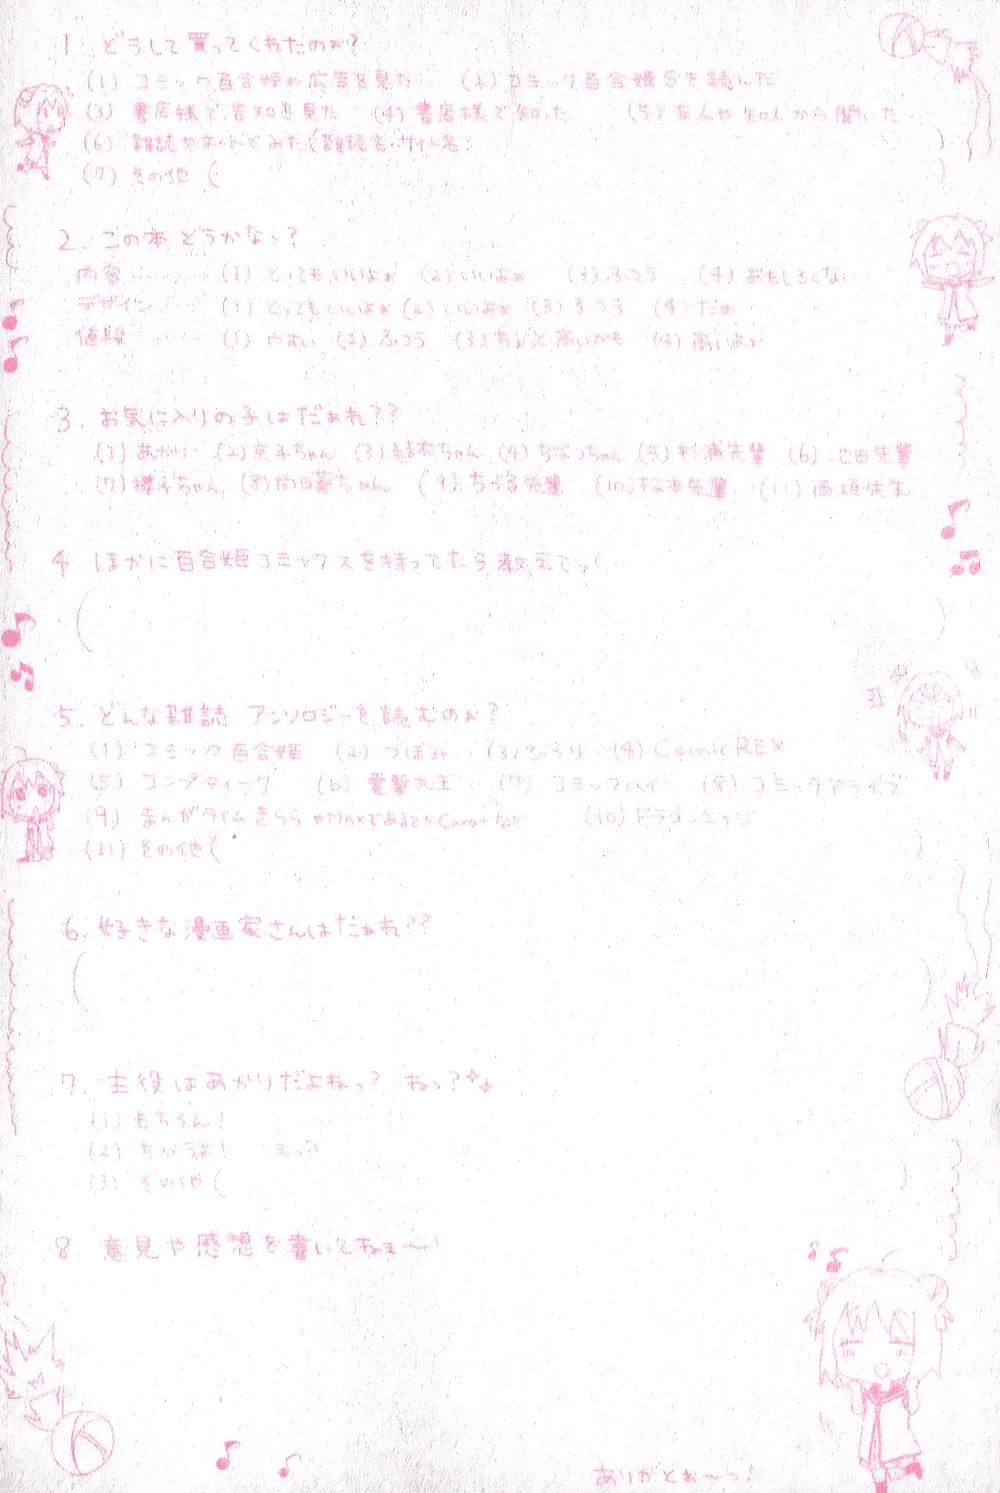 1. どうして買ってくれたのぉ?
(1) コミック百合姫の広告を見た (2) コミック百合姫Sを読んだ
(3) 書店様で告知を見た (4) 書店様で知った (5) 友人や知人から聞いた
(6) 雑誌やネットでみた(雑誌名・サイト名: )
(7) その他 ( )
2. この本どうかなっ?
内容 ……… (1) とってもいいよぉ (2) いいよぉ (3) ふつう (4) おもしろくない
デザイン …… (1) とってもいいよぉ (2) いいよぉ (3) ふつう (4) だめ
値段 ……… (1) やすい (2) ふつう (3) ちょっと高いかも (4) 高いよぉ
3. お気に入りの子はだぁれ??
(1) あかり (2) 京子ちゃん (3) 結衣ちゃん (4) ちなつちゃん (5) 杉浦先輩 (6) 池田先輩
(7) 櫻子ちゃん (8) 向日葵ちゃん (9) ちとせ先輩 (10) 松本先輩 (11) 西垣先生
4. ほかに百合姫コミックスを持ってたら教えてっ!
( )
5. どんな雑誌 アンソロジーを読むのぉ?
(1) コミック百合姫 (2) つぼみ (3) ひらり (4) Comic REX
(5) コンプティーク (6) 電撃大王 (7) コミックハイ (8) コミックアライブ
(9) まんがタイムきららやMAXであるとかCaratなど (10) ドラゴンエイジ
(11) その他 ( )
6. 好きな漫画家さんはだぁれ??
( )
7. 主役はあかりだよねっ? ねっ?
(1) もちろん!
(2) ちがうよ! えっ
(3) その他 ( )
8. 意見や感想を書いてねぇ〜!
ありがとぉ〜っ!